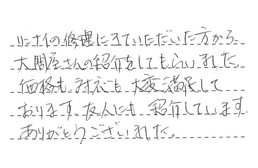 リンナイの修理にきていただいた方から、
大問屋さんの紹介をしてもらいました
価格も対応も大変満足して
おります。友人にも紹介しています
ありがとうございました。